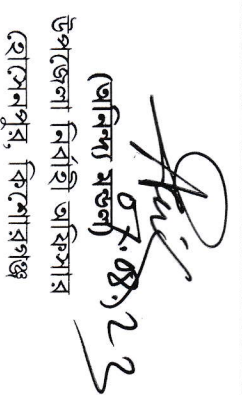 ০৭.০৪.২২
(অনিন্দ্য মন্ডল)
উপজেলা নির্বাহী অফিসার
হোসেনপুর, কিশোরগঞ্জ